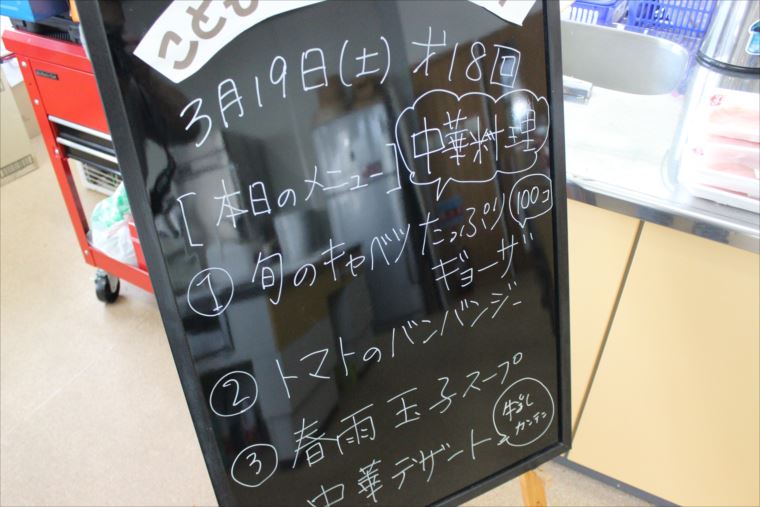 こども
3月19日(土) 才18回
[本日のメニュー] 中華料理
① 旬のキャベツたっぷり 100コ
ギョーザ
② トマトのバンバンジー
③ 春雨玉子スープ
中華デザート 牛乳カンテン